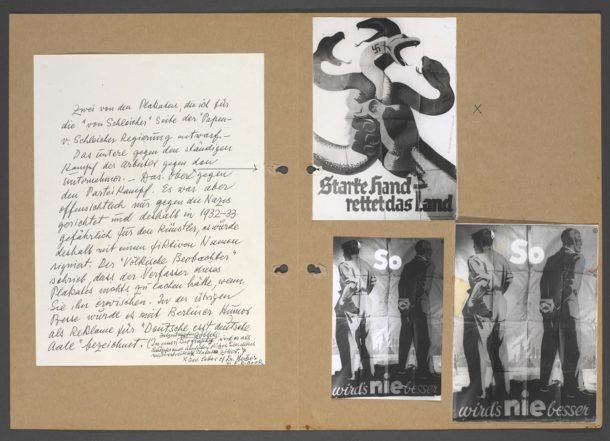 Zwei von den Plakaten, die ich für
die "von Schleicher" Seite der Papen-
v. Schleicher Regierung entwarf.—
Das untere gegen den ständigen
Kampf der Arbeiter gegen den
Unternehmer.— Das obere gegen
den Parteikampf. Es war aber
offensichtlich nur gegen die Nazis
gerichtet und deshalb in 1932-33
gefährlich für den Künstler, es würde
deshalb mit einem fiktiven Namen
signiert. Der "Völkische Beobachter"
schrieb, dass der Verfasser dieses
Plakates nichts zu lachen hätte wenn
Sie ihn erwischen. In der übrigen
Presse wurde es mit Berliner Humor
als Reklame für "Deutsche esst deutsche
Aale" bezeichnet.
x
Starke Hand
rettet das Land
So
wird's nie besser
So
wird's nie besser